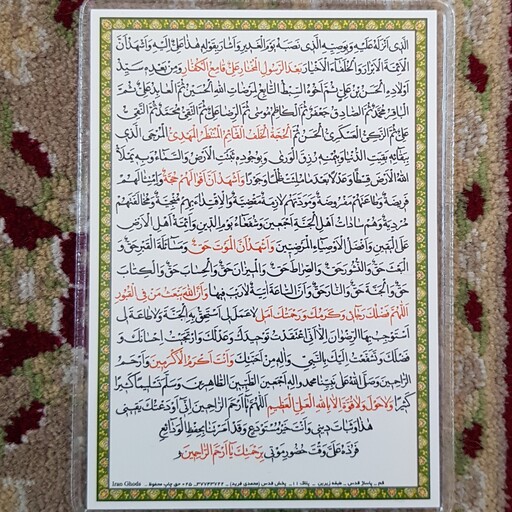 الَّذی اَنْزَلَهُ عَلَیْهِ وَ بِوَصِیِّهِ الَّذی نَصَبَهُ یَوْمَ الْغَدیرِ وَ اَشارَ بِقَوْلِهِ هذا عَلِیٌّ اِلَیْهِ وَ اَشْهَدُ اَنَّ
الْاَئِمَّةَ الْاَبْرارَ وَ الْخُلَفآءَ الْاَخْیارَ بَعْدَ الرَّسُولِ الْمُخْتارِ عَلِیٌّ قامِعُ الْکُفَّارِ وَ مِنْ بَعْدِهِ سَیِّدُ
اَوْلادِهِ الْحَسَنُ بْنُ عَلِیٍّ ثُمَّ اَخُوهُ السِّبْطُ التَّابِعُ لِمَرْضاتِ اللهِ الْحُسَیْنُ ثُمَّ الْعابِدُ عَلِیٌّ ثُمَّ
الْباقِرُ مُحَمَّدٌ ثُمَّ الصَّادِقُ جَعْفَرٌ ثُمَّ الْکاظِمُ مُوسی ثُمَّ الرِّضا عَلِیٌّ ثُمَّ التَّقِیُّ مُحَمَّدٌ ثُمَّ النَّقِیُّ
عَلِیٌّ ثُمَّ الزَّکِیُّ الْعَسْکَرِیُّ الْحَسَنُ ثُمَّ الْحُجَّةُ الْخَلَفُ الْقآئِمُ الْمُنْتَظَرُ الْمَهْدِیُّ الْمُرْجَی الَّذی
بِبَقائِهِ بَقِیَتِ الدُّنْیا وَ بِیُمْنِهِ رُزِقَ الْوَری وَ بِوُجُودِهِ ثَبَتَتِ الْاَرْضُ وَ السَّمآءُ وَ بِهِ یَمْلَأُ
اللهُ الْاَرْضَ قِسْطاً وَ عَدْلاً بَعْدَ ما مُلِئَتْ ظُلْماً وَ جَوْراً وَ اَشْهَدُ اَنَّ اَقْوالَهُمْ حُجَّةٌ وَ امْتِثالَهُمْ
فَریضَةٌ وَ طاعَتَهُمْ مَفْرُوضَةٌ وَ مَوَدَّتَهُمْ لازِمَةٌ مَقْضِیَّةٌ وَ الْاِقْتِدآءَ بِهِمْ مُنْجِیَةٌ وَ مُخالَفَتَهُمْ
مُرْدِیَةٌ وَ هُمْ ساداتُ اَهْلِ الْجَنَّةِ اَجْمَعینَ وَ شُفَعآءُ یَوْمِ الدّینِ وَ اَئِمَّةُ اَهْلِ الْاَرْضِ
عَلَی الْیَقینِ وَ اَفْضَلُ الْاَوْصِیآءِ الْمَرْضِیّینَ وَ اَشْهَدُ اَنَّ الْمَوْتَ حَقٌّ وَ مُسآئَلَةَ الْقَبْرِ حَقٌّ وَ
الْبَعْثَ حَقٌّ وَ النُّشُورَ حَقٌّ وَ الصِّراطَ حَقٌّ وَ الْمیزانَ حَقٌّ وَ الْحِسابَ حَقٌّ وَ الْکِتابَ
حَقٌّ وَ الْجَنَّةَ حَقٌّ وَ النَّارَ حَقٌّ وَ اَنَّ السَّاعَةَ آتِیَةٌ لا رَیْبَ فیها وَ اَنَّ اللهَ یَبْعَثُ مَنْ فِی الْقُبُورِ
اَللّهُمَّ فَضْلُکَ رَجآئی وَ کَرَمُکَ وَ رَحْمَتُکَ اَمَلی لا عَمَلَ لی اَسْتَحِقُّ بِهِ الْجَنَّةَ وَ لا طاعَةَ لی
اَسْتَوْجِبُ بِهَا الرِّضْوانَ اِلاَّ اَنِّی اعْتَقَدْتُ تَوْحیدَکَ وَ عَدْلَکَ وَ ارْتَجَیْتُ اِحْسانَکَ وَ
فَضْلَکَ وَ تَشَفَّعْتُ اِلَیْکَ بِالنَّبِیِّ وَ آلِهِ مِنْ اَحِبَّتِکَ وَ اَنْتَ اَکْرَمُ الْاَکْرَمینَ وَ اَرْحَمُ
الرَّاحِمینَ وَ صَلَّی اللهُ عَلی نَبِیِّنا مُحَمَّدٍ وَ آلِهِ اَجْمَعینَ الطَّیِّبینَ الطَّاهِرینَ وَ سَلَّمَ تَسْلیماً کَثیراً
کَثیراً وَ لا حَوْلَ وَ لا قُوَّةَ اِلاَّ بِاللهِ الْعَلِیِّ الْعَظیمِ اَللّهُمَّ یا اَرْحَمَ الرَّاحِمینَ اِنّی اَوْدَعْتُکَ یَقینی
هذا وَ ثَباتَ دینی وَ اَنْتَ خَیْرُ مُسْتَوْدَعٍ وَ قَدْ اَمَرْتَنا بِحِفْظِ الْوَدآئِعِ
فَرُدَّهُ عَلَیَّ وَقْتَ حُضُورِ مَوْتی بِرَحْمَتِکَ یا اَرْحَمَ الرَّاحِمینَ و
قم _ پاساژ قدس _ طبقه زیرین _ پلاک ۱۱ _ پخش قدس (محمدی فرید) _ ۳۷۷۴۳۷۴۲-۰۲۵ حق چاپ محفوظ _ Iran Ghods